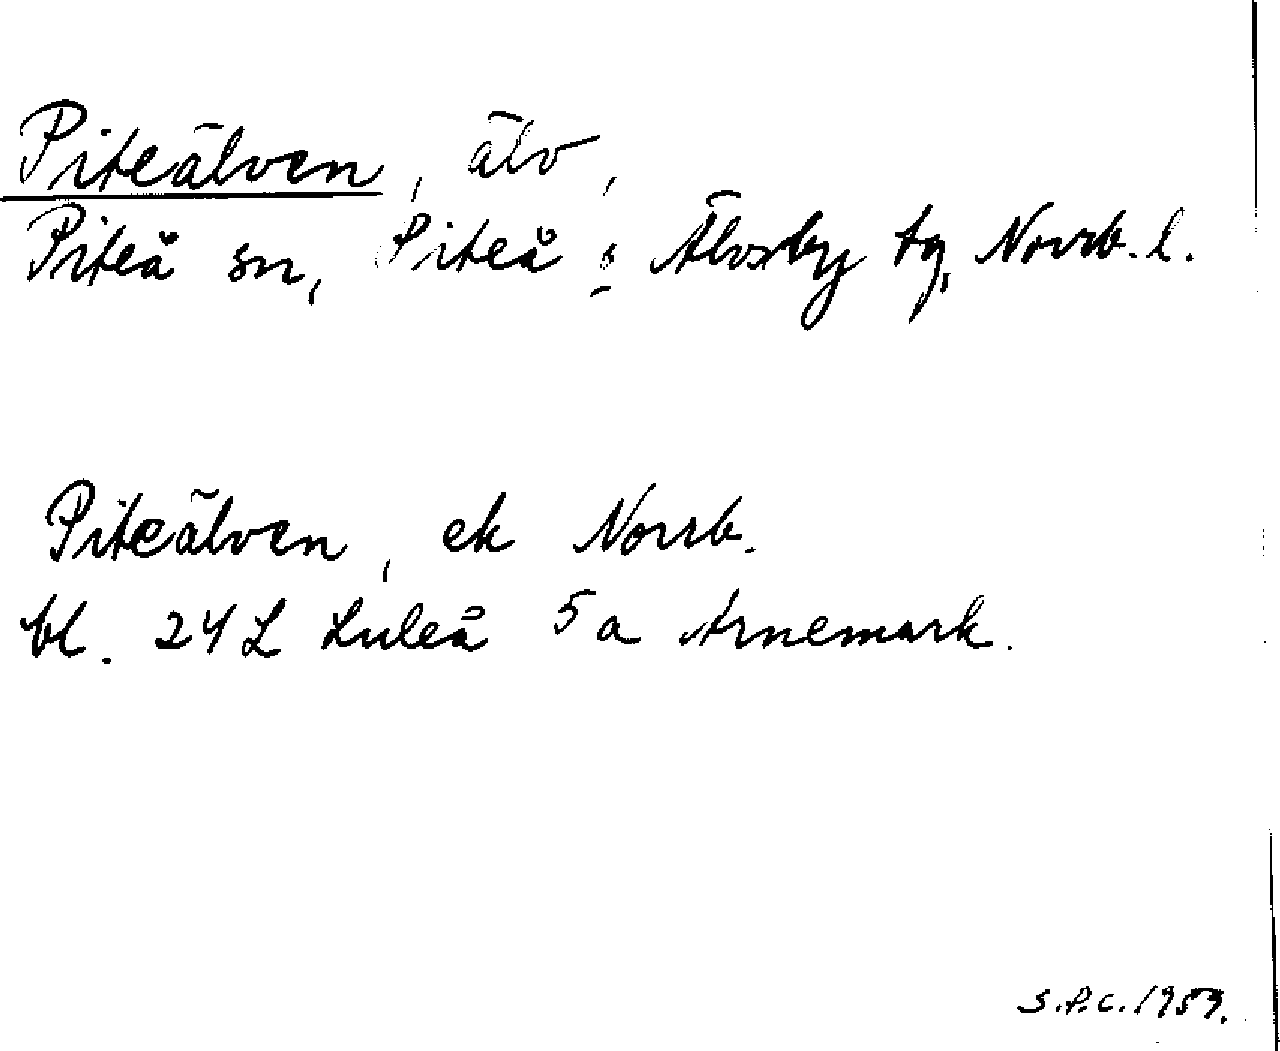 Piteälven, älv,
Piteå sn, Piteå o Älvsby tg, Norrb. l.
Piteälven, ek Norrb.
bl. 24 L Luleå 5 a Arnemark.
S.P.C. 1959.